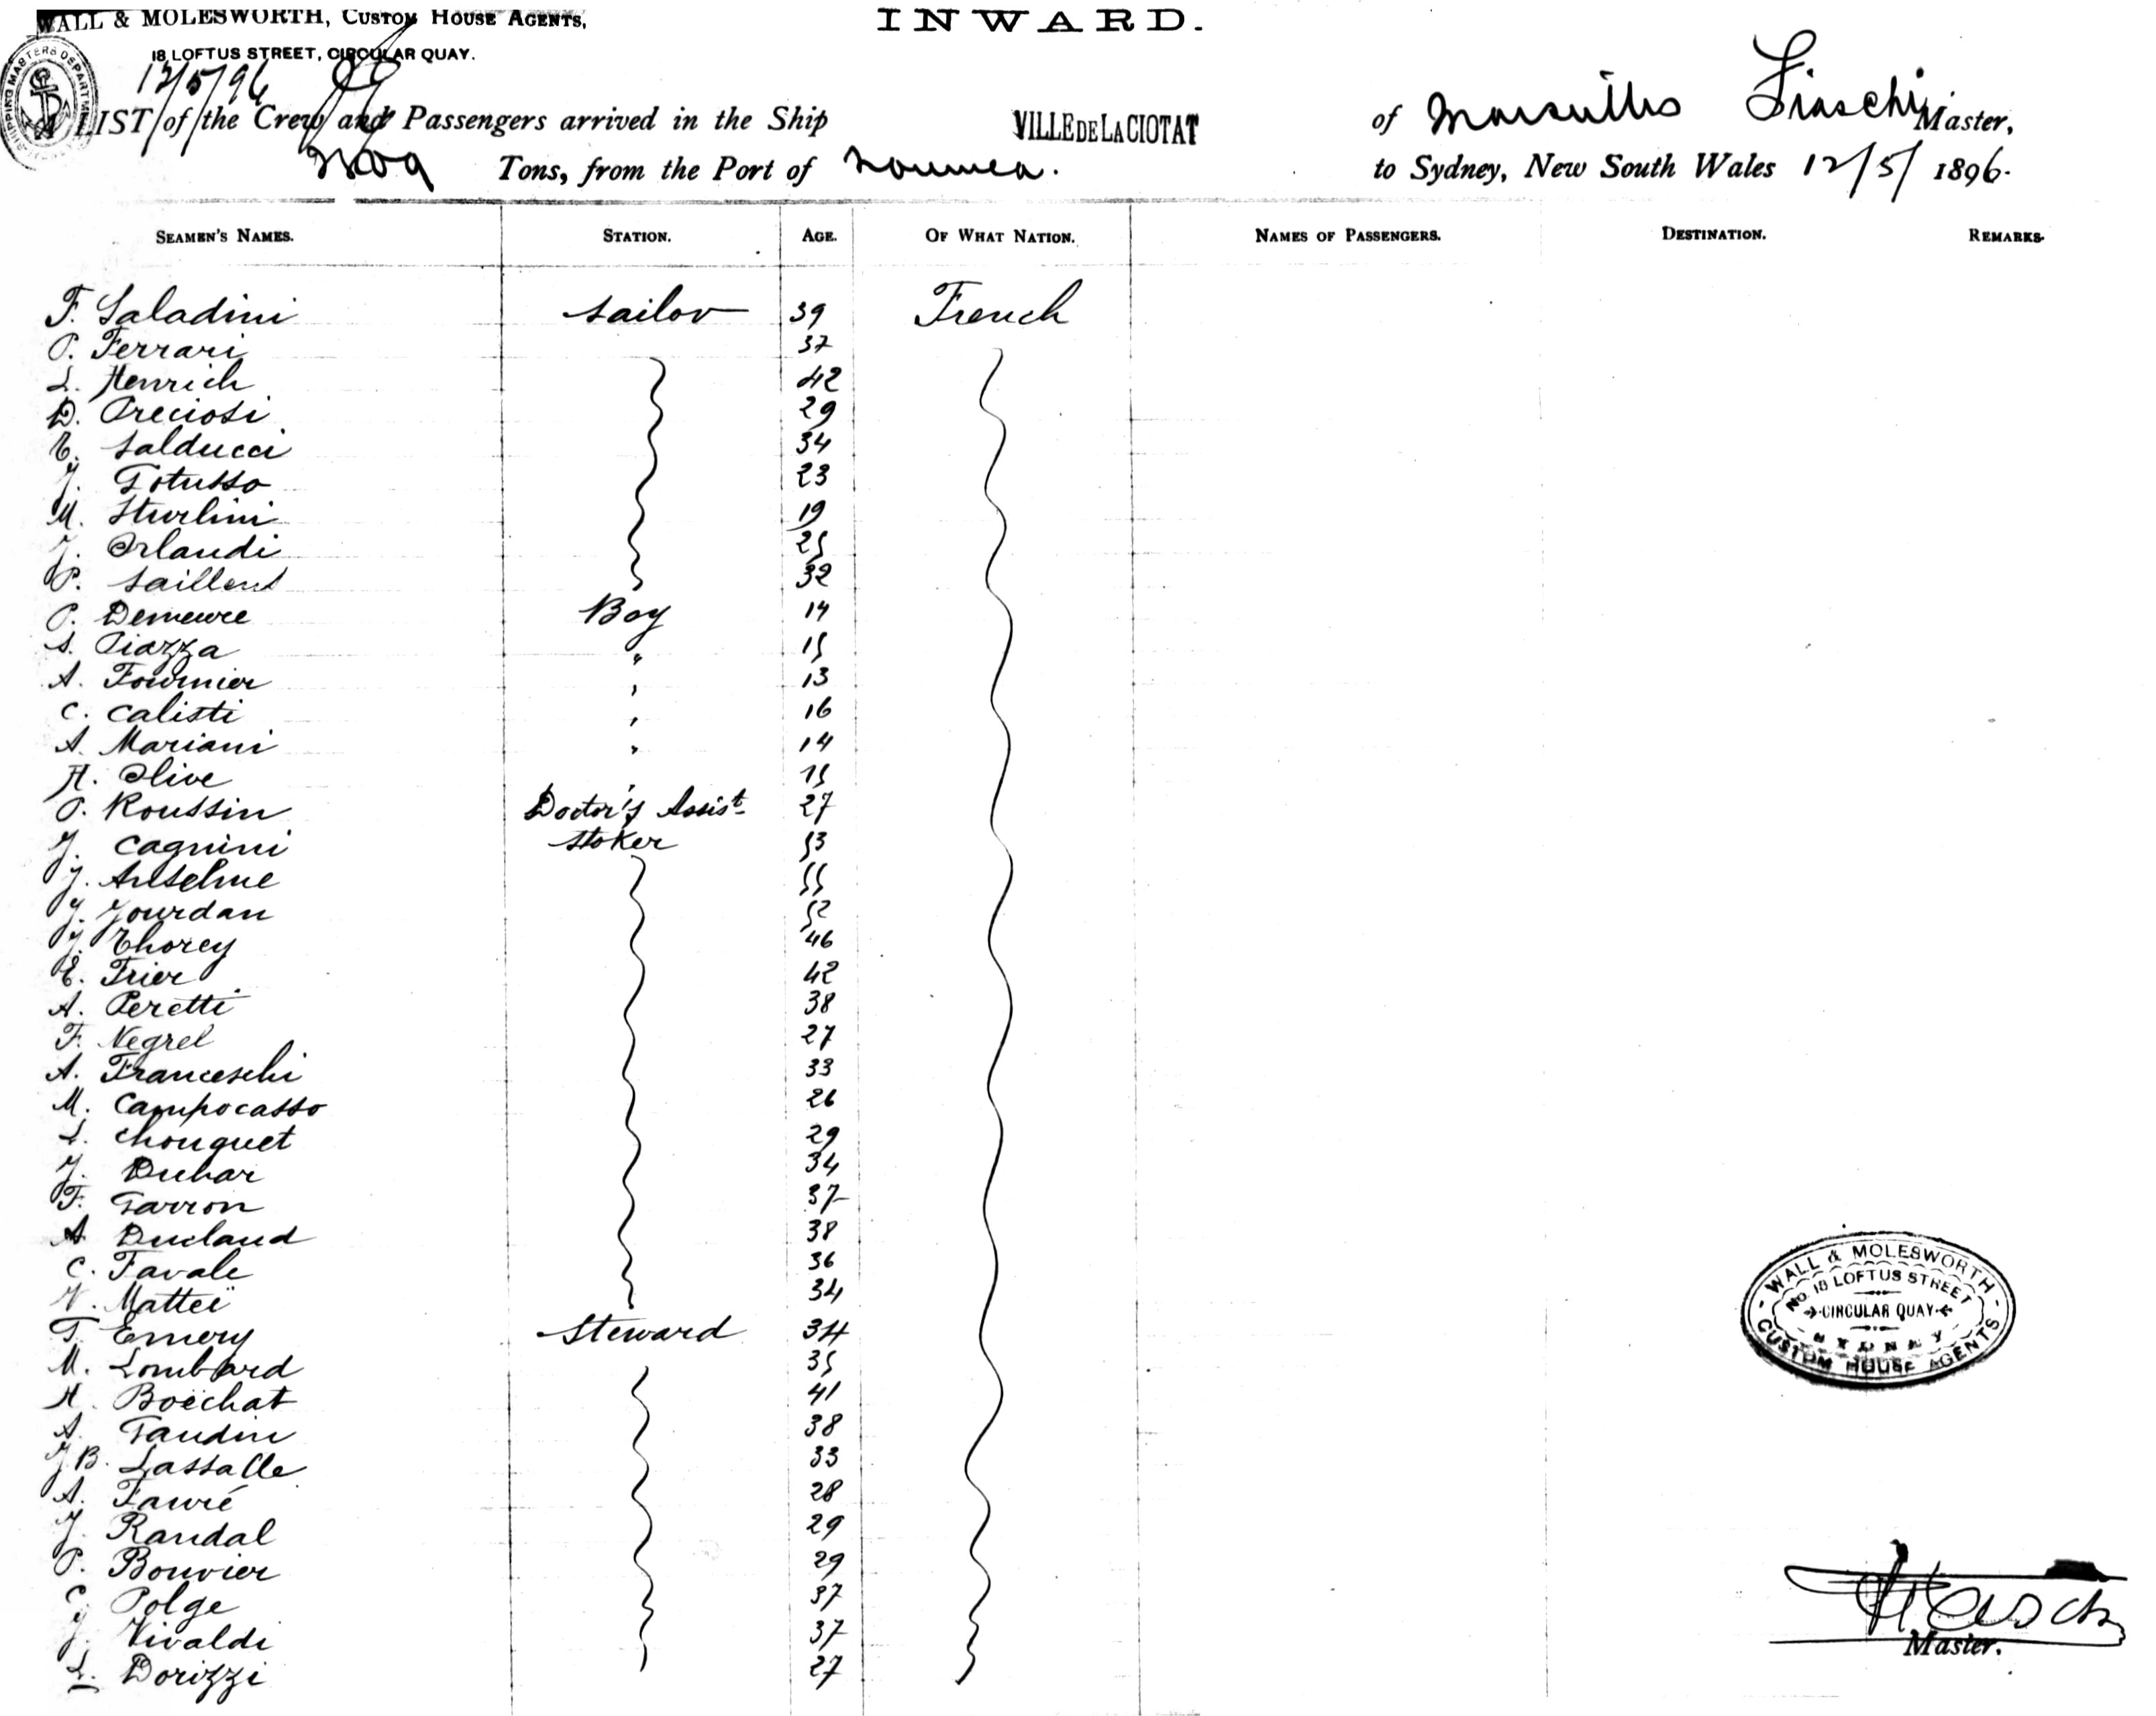 WALL & MOLESWORTH, CUSTOM HOUSE AGENTS,
18 LOFTUS STREET, CIRCULAR QUAY.
INWARD.
12/5/96
LIST of the Crew and Passengers arrived in the Ship VILLE DE LA CIOTAT of Marseilles Fiaschi Master,
Tons, from the Port of Noumea. to Sydney, New South Wales 12/5/ 1896.
SEAMEN'S NAMES. STATION. AGE. OF WHAT NATION. NAMES OF PASSENGERS. DESTINATION. REMARKS.
F. Saladini Sailor 39 French
P. Ferrari 37
L. Henrich 42
D. Preciosi 29
E. Salducci 34
J. Totusso 23
M. Sturlini 19
J. Orlandi 25
P. Saillent 32
P. Demeure Boy 14
S. Piazza " 15
A. Fournier " 13
C. Calisti " 16
A. Mariani " 14
H. Olive " 15
P. Roussin Doctor's Assist 27
J. Cagnini Stoker 53
J. Anselme 55
J. Jourdan 52
J. Thorey 46
E. Trier 42
A. Peretti 38
F. Negrel 27
A. Franceschi 33
M. Campocasso 26
L. Chouquet 29
J. Duhar 34
F. Garron 37
A. Duclaud 38
C. Favale 36
V. Matteï 34
T. Emery Steward 34
M. Lombard 35
H. Boëchat 41
A. Gaudin 38
J.B. Lassalle 33
A. Fauré 28
J. Randal 29
P. Bouvier 29
C. Polge 37
J. Vivaldi 37
L. Dorizzi 27
WALL & MOLESWORTH
No. 18 LOFTUS STREET
CIRCULAR QUAY
SYDNEY
CUSTOM HOUSE AGENTS
Master.